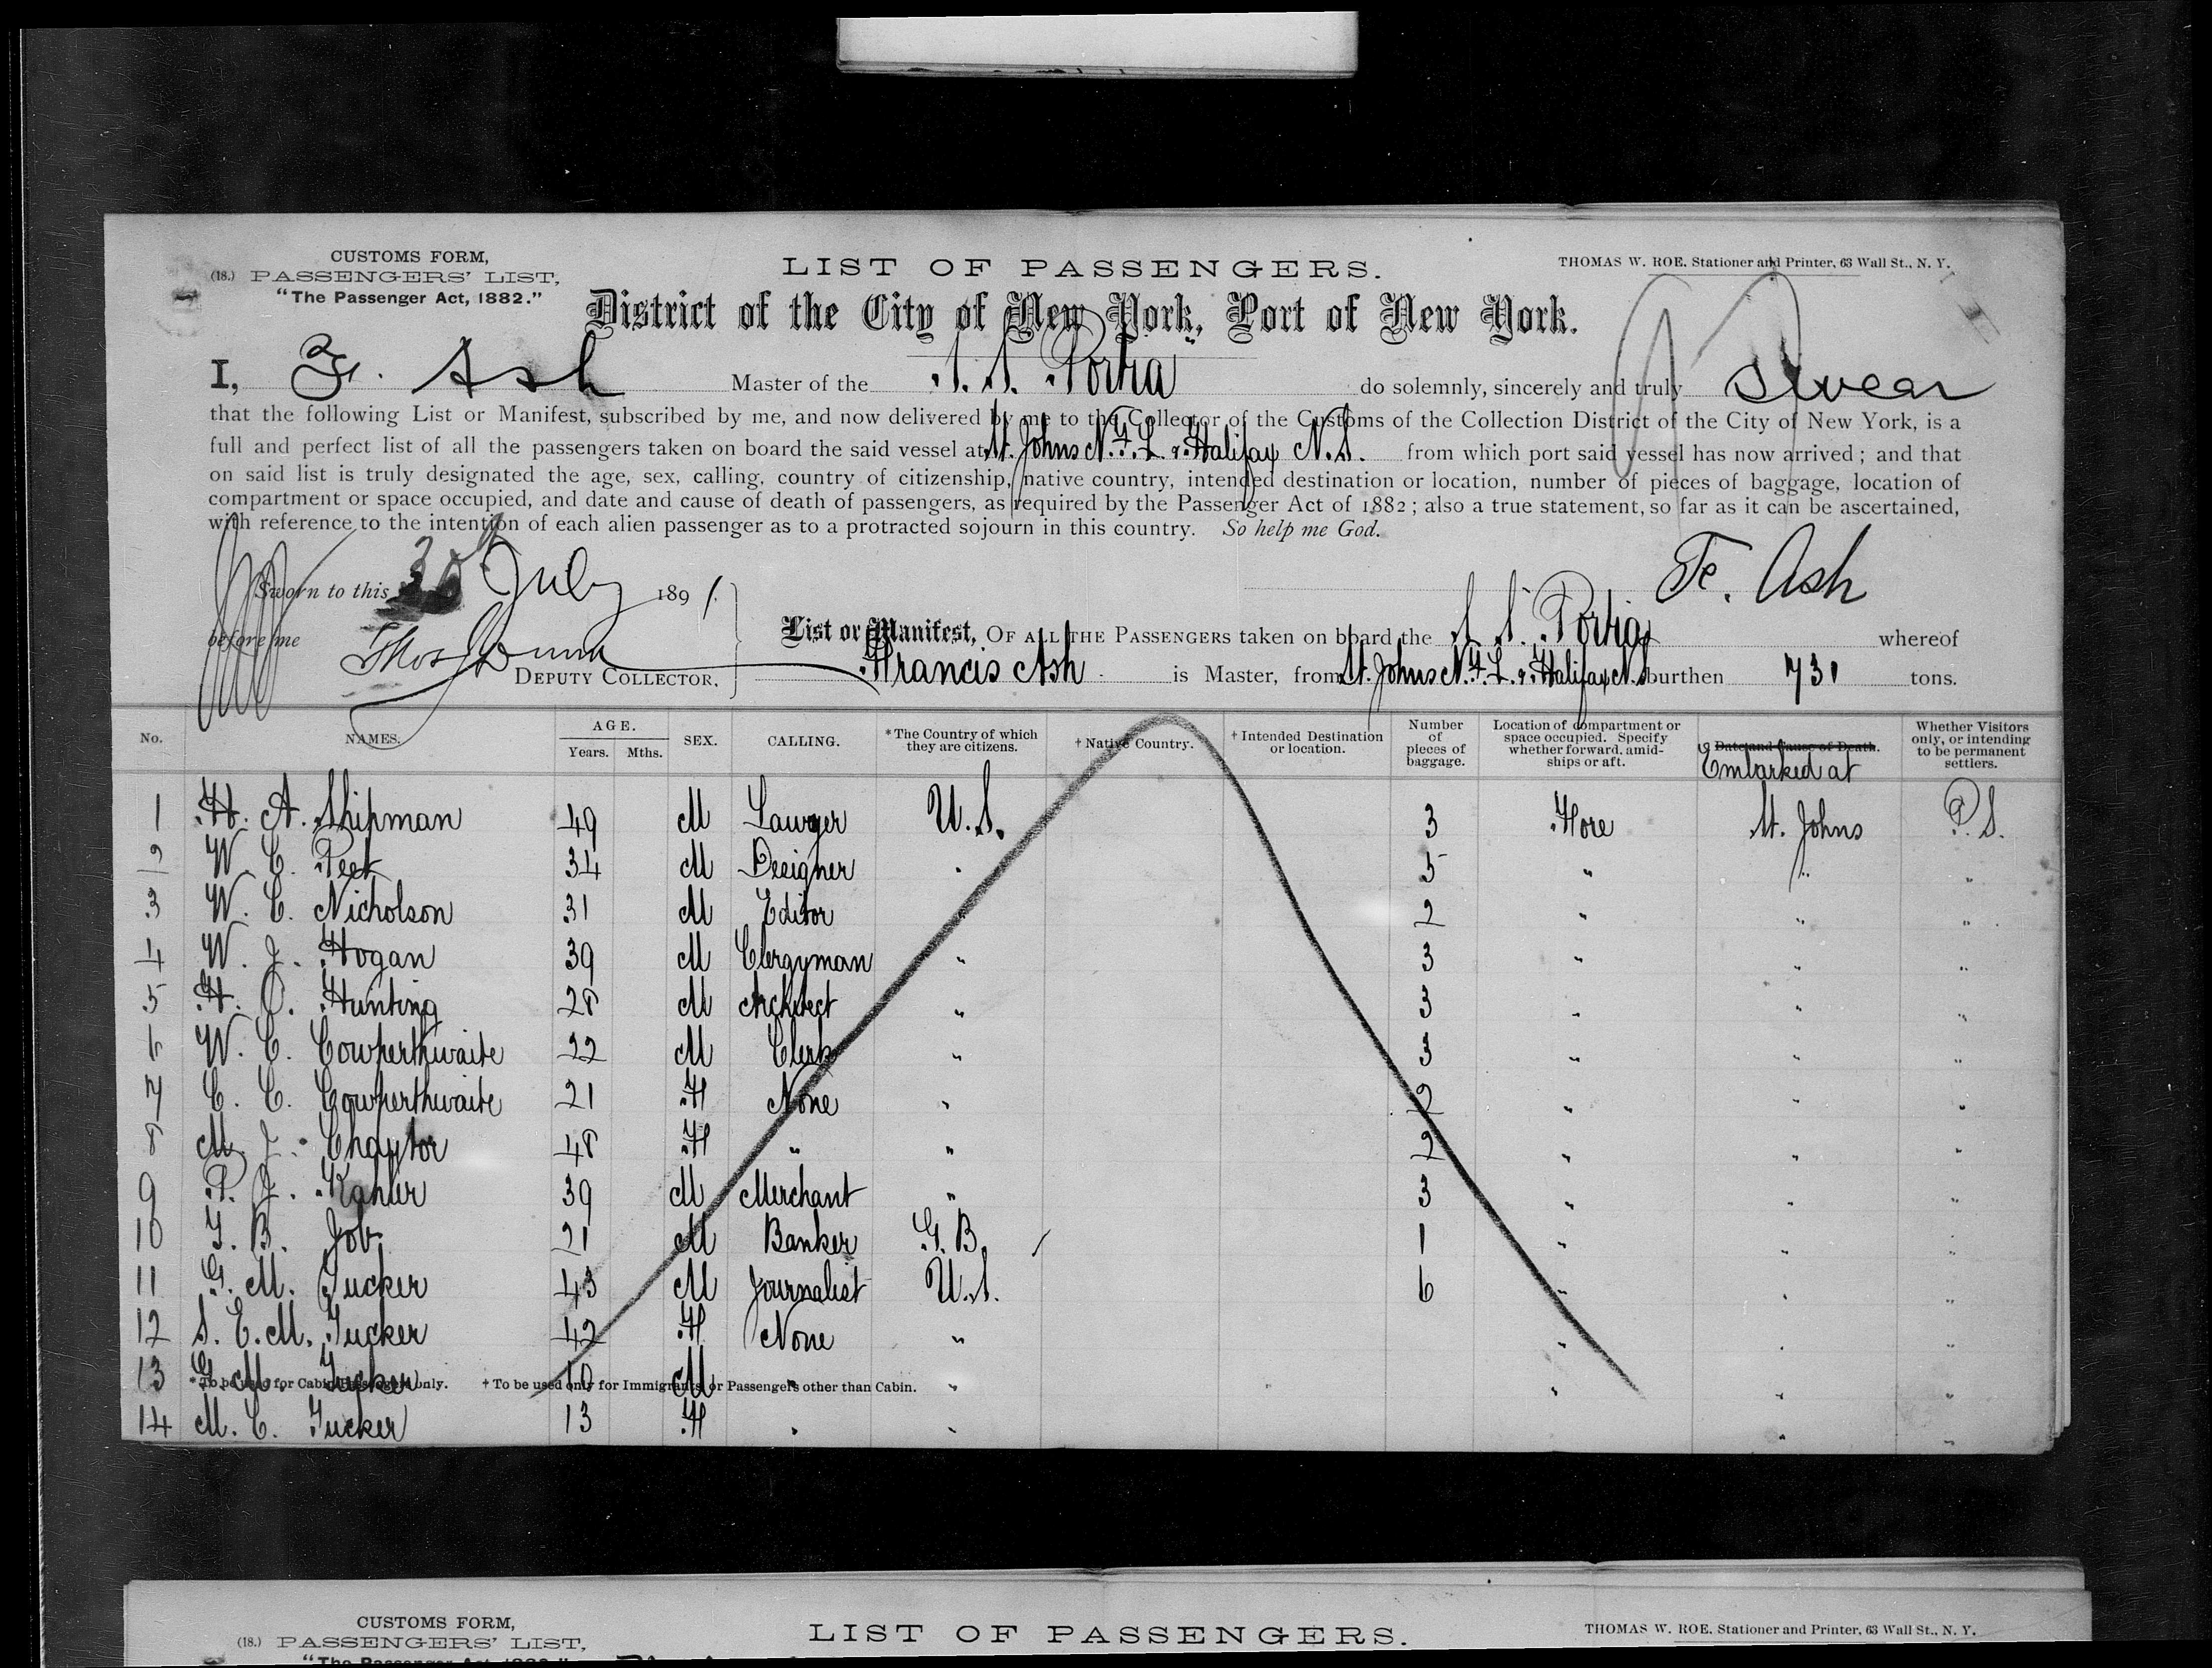 CUSTOMS FORM,
(18.) PASSENGERS' LIST,
"The Passenger Act, 1882."
LIST OF PASSENGERS.
THOMAS W. ROE, Stationer and Printer, 63 Wall St., N. Y.
District of the City of New York, Port of New York.
I, F. Ash Master of the S. S. Portia do solemnly, sincerely and truly swear
that the following List or Manifest, subscribed by me, and now delivered by me to the Collector of the Customs of the Collection District of the City of New York, is a
full and perfect list of all the passengers taken on board the said vessel at St. Johns N.F.L. & Halifax N.S. from which port said vessel has now arrived; and that
on said list is truly designated the age, sex, calling, country of citizenship, native country, intended destination or location, number of pieces of baggage, location of
compartment or space occupied, and date and cause of death of passengers, as required by the Passenger Act of 1882; also a true statement, so far as it can be ascertained,
with reference to the intention of each alien passenger as to a protracted sojourn in this country. So help me God.
Sworn to this 30 July 1891. F. Ash
before me Thos Dunn
DEPUTY COLLECTOR.
List or Manifest, OF ALL THE PASSENGERS taken on board the S. S. Portia whereof
Francis Ash is Master, from St. Johns N.F.L. & Halifax N.S. burthen 731 tons.
No. NAMES. AGE. Years. Mths. SEX. CALLING. *The Country of which they are citizens. †Native Country. †Intended Destination or location. Number of pieces of baggage. Location of compartment or space occupied. Specify whether forward, amidships or aft. Date and Cause of Death. Embarked at Whether Visitors only, or intending to be permanent settlers.
1 H. A. Shipman 49 M Lawyer U.S. 3 Fore St. Johns P.S.
2 W. C. Peet 34 M Designer " 5 " " "
3 W. C. Nicholson 31 M Editor " 2 " " "
4 W. J. Hogan 39 M Clergyman " 3 " " "
5 H. C. Hunting 28 M Architect " 3 " " "
6 W. C. Cowperthwaite 22 M Clerk " 3 " " "
7 C. C. Cowperthwaite 21 F None " 2 " " "
8 M. J. Chaytor 48 F " " 2 " " "
9 P. J. Kahler 39 M Merchant " 3 " " "
10 T. B. Job 21 M Banker G.B. 1 " " "
11 G. M. Tucker 43 M Journalist U.S. 6 " " "
12 S. E. M. Tucker 42 F None " " " "
13 G. M. Tucker 10 M " " " " "
*To be used for Cabin Passengers only. †To be used only for Immigrants or Passengers other than Cabin.
14 M. C. Tucker 13 F " " " "
CUSTOMS FORM,
(18.) PASSENGERS' LIST,
"The Passenger Act, 1882."
LIST OF PASSENGERS.
THOMAS W. ROE, Stationer and Printer, 63 Wall St., N. Y.